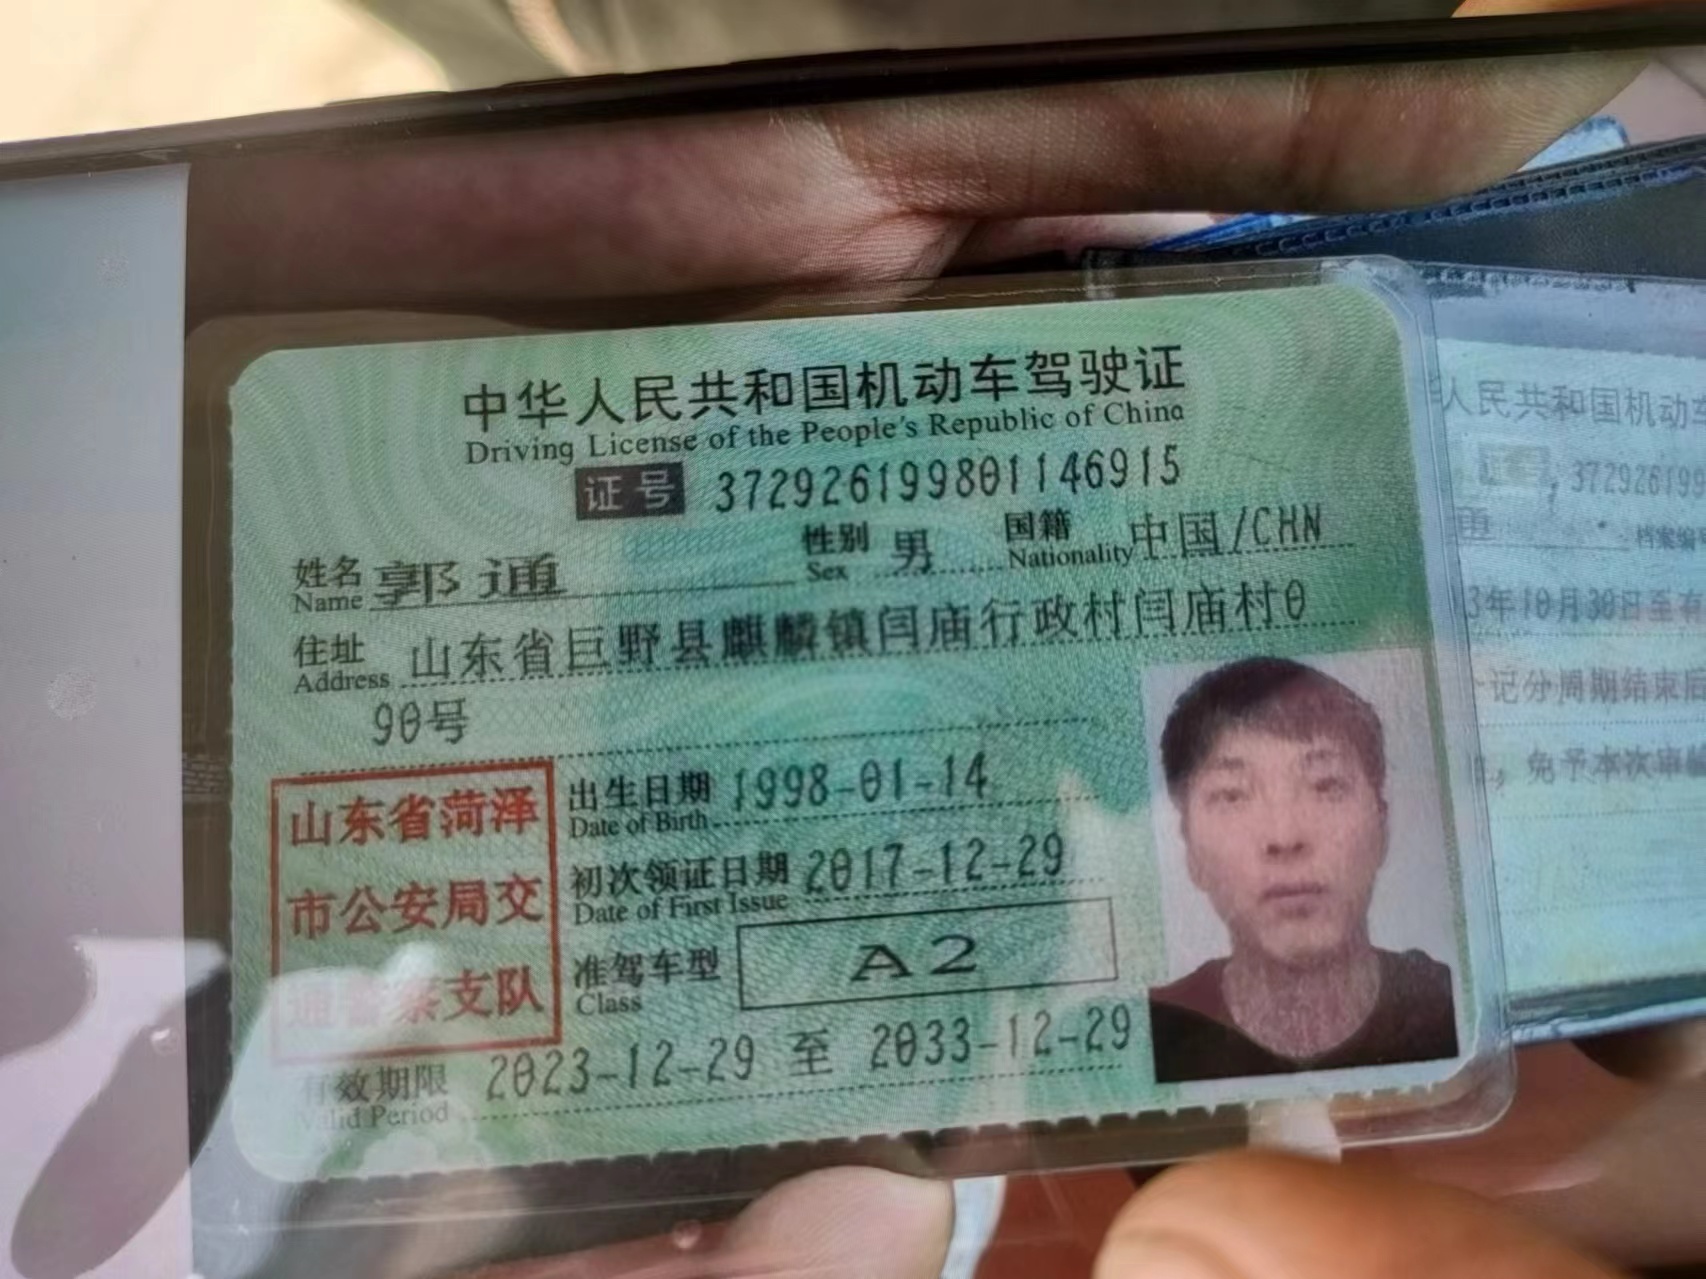 中华人民共和国机动车驾驶证
Driving License of the People's Republic of China
证号 372926199801146915
姓名 郭通 性别 男 国籍 中国/CHN
Name Sex Nationality
住址 山东省巨野县麒麟镇闫庙行政村闫庙村0
Address
90号
山东省菏泽
市公安局交
通警察支队
出生日期 1998-01-14
Date of Birth
初次领证日期 2017-12-29
Date of First Issue
准驾车型 A2
Class
有效期限 2023-12-29 至 2033-12-29
Valid Period
人民共和国机动
证号 37292619
通 档案编
3年10月30日至有
记分周期结束后
,免予本次审